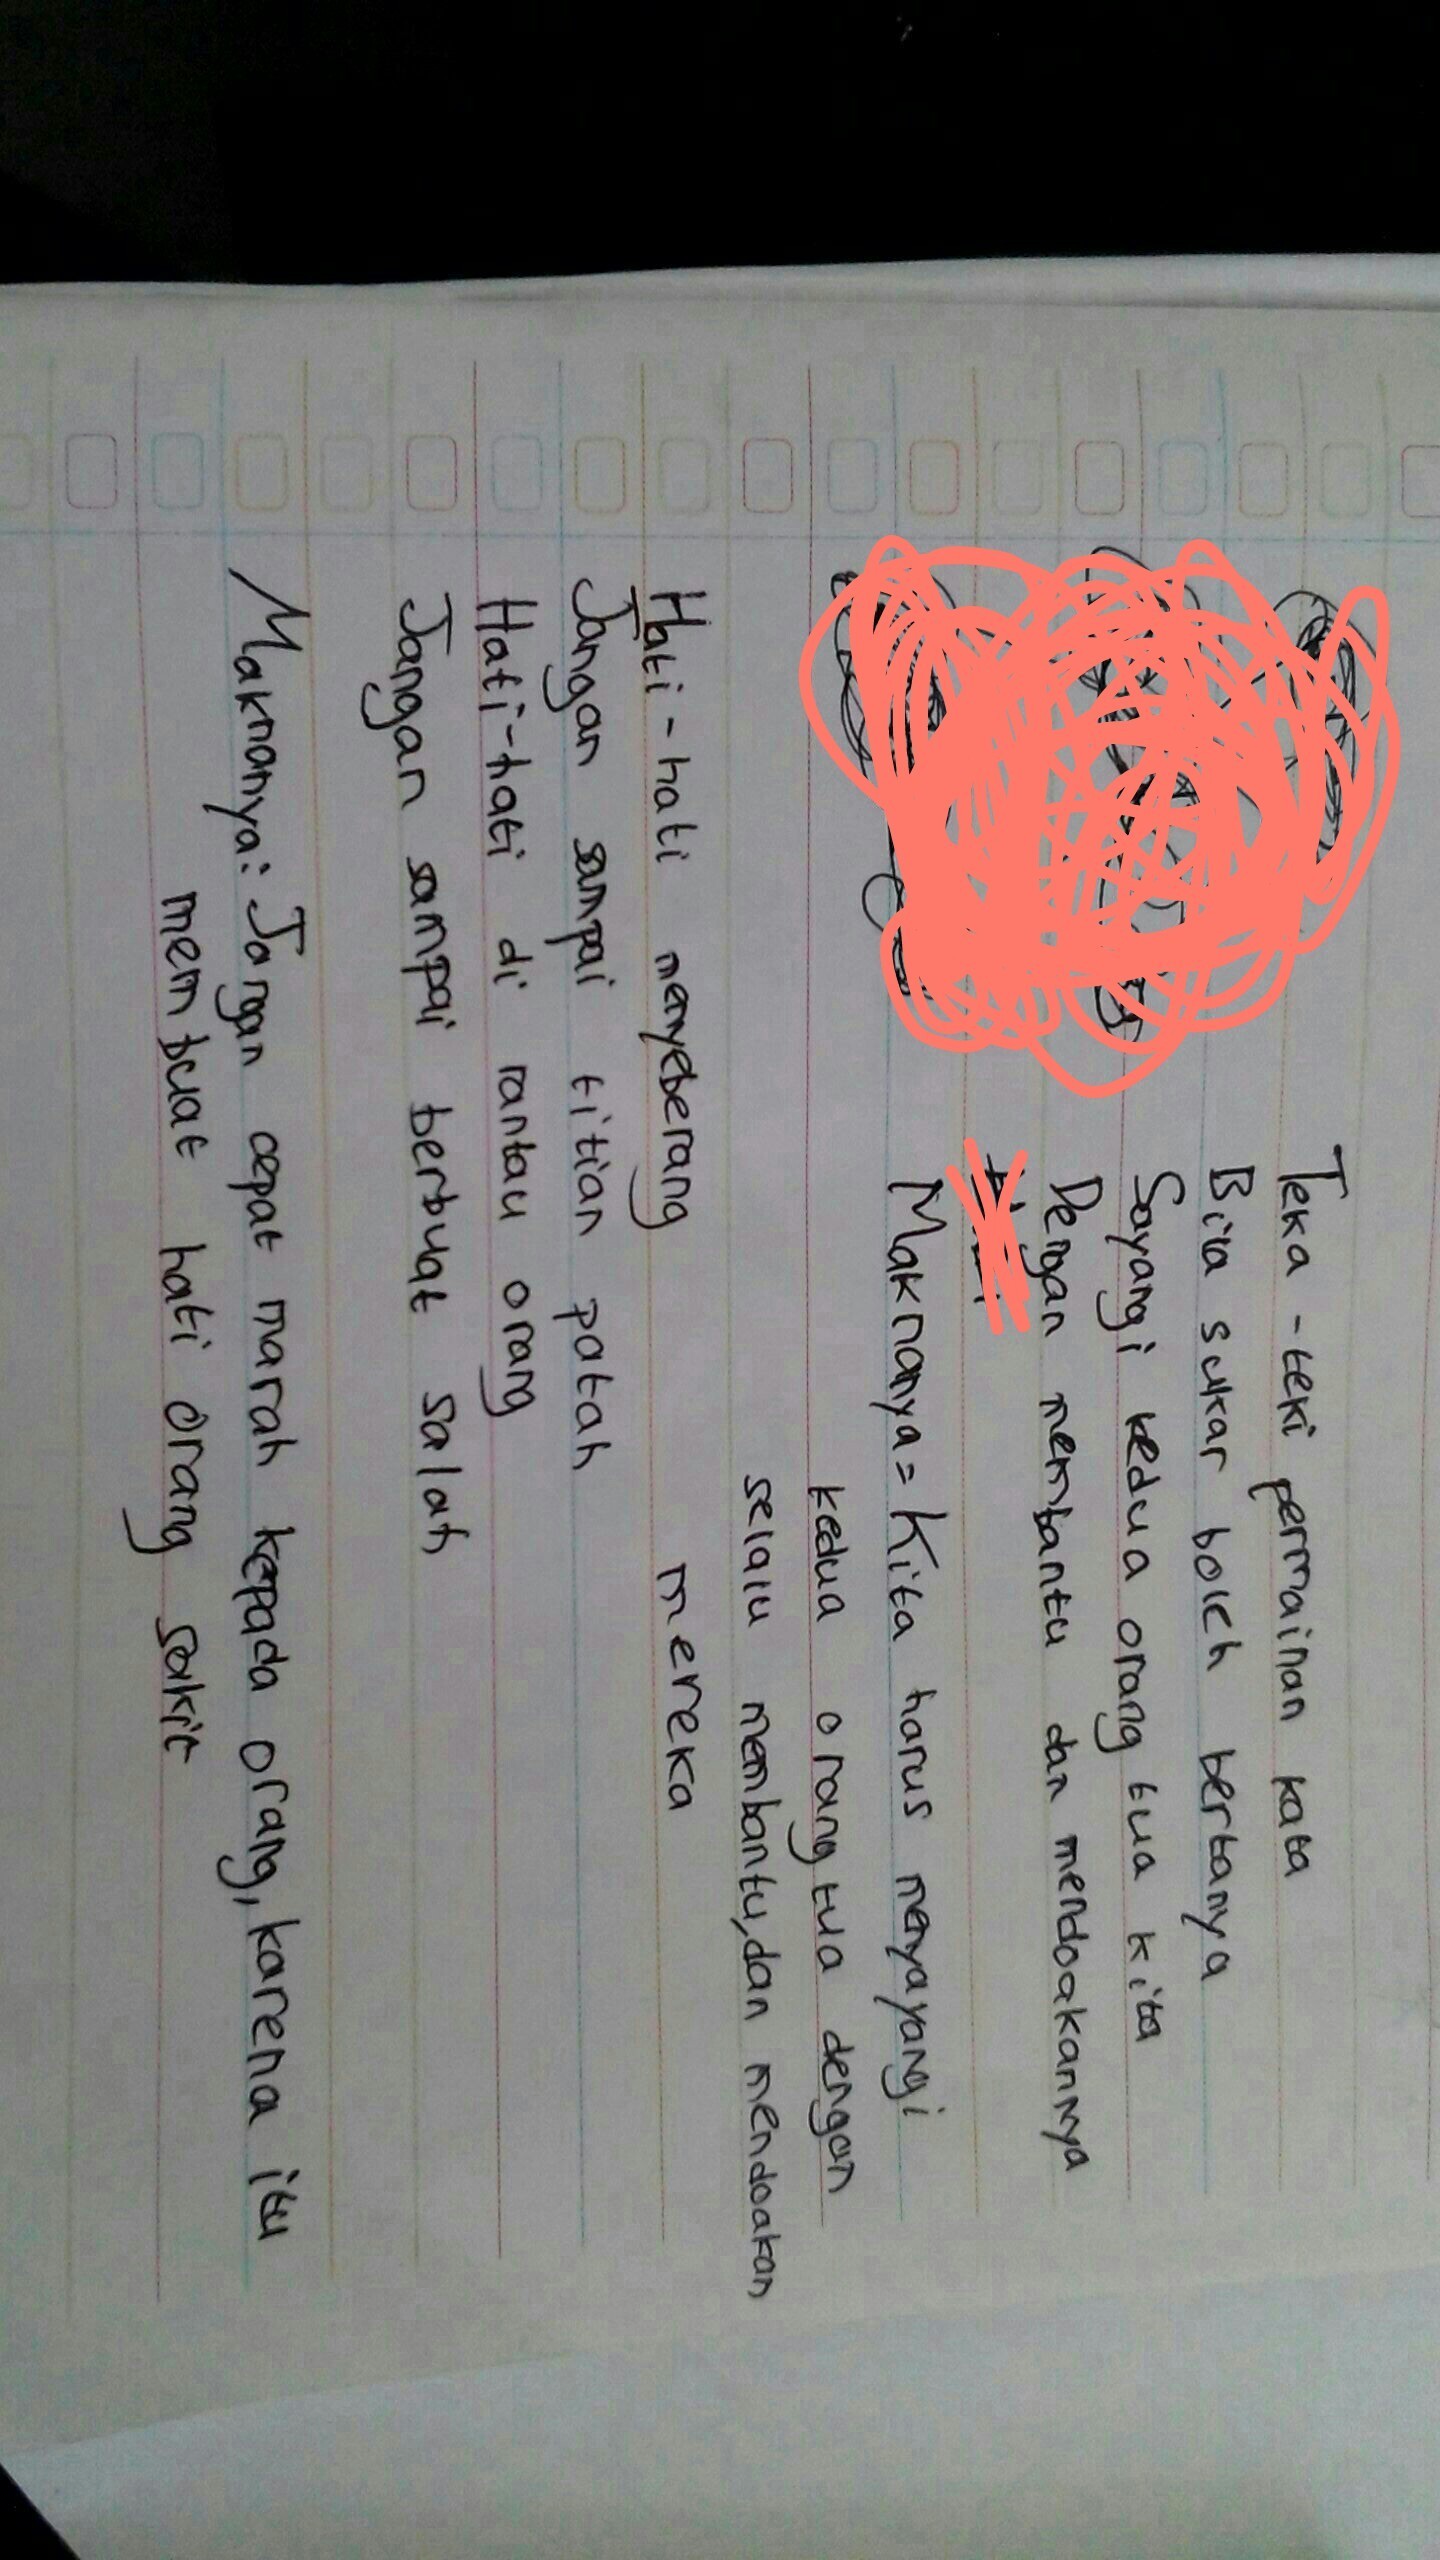 Teka-teki permainan kata
Bila sukar boleh bertanya
Sayangi kedua orang tua kita
Dengan membantu dan mendoakannya
Maknanya = Kita harus menyayangi
kedua orang tua dengan
selalu membantu, dan mendoakan
mereka
Hati-hati menyeberang
Jangan sampai titian patah
Hati-hati di rantau orang
Jangan sampai berbuat salah
Maknanya: Jangan cepat marah kepada orang, karena itu
membuat hati orang sakit